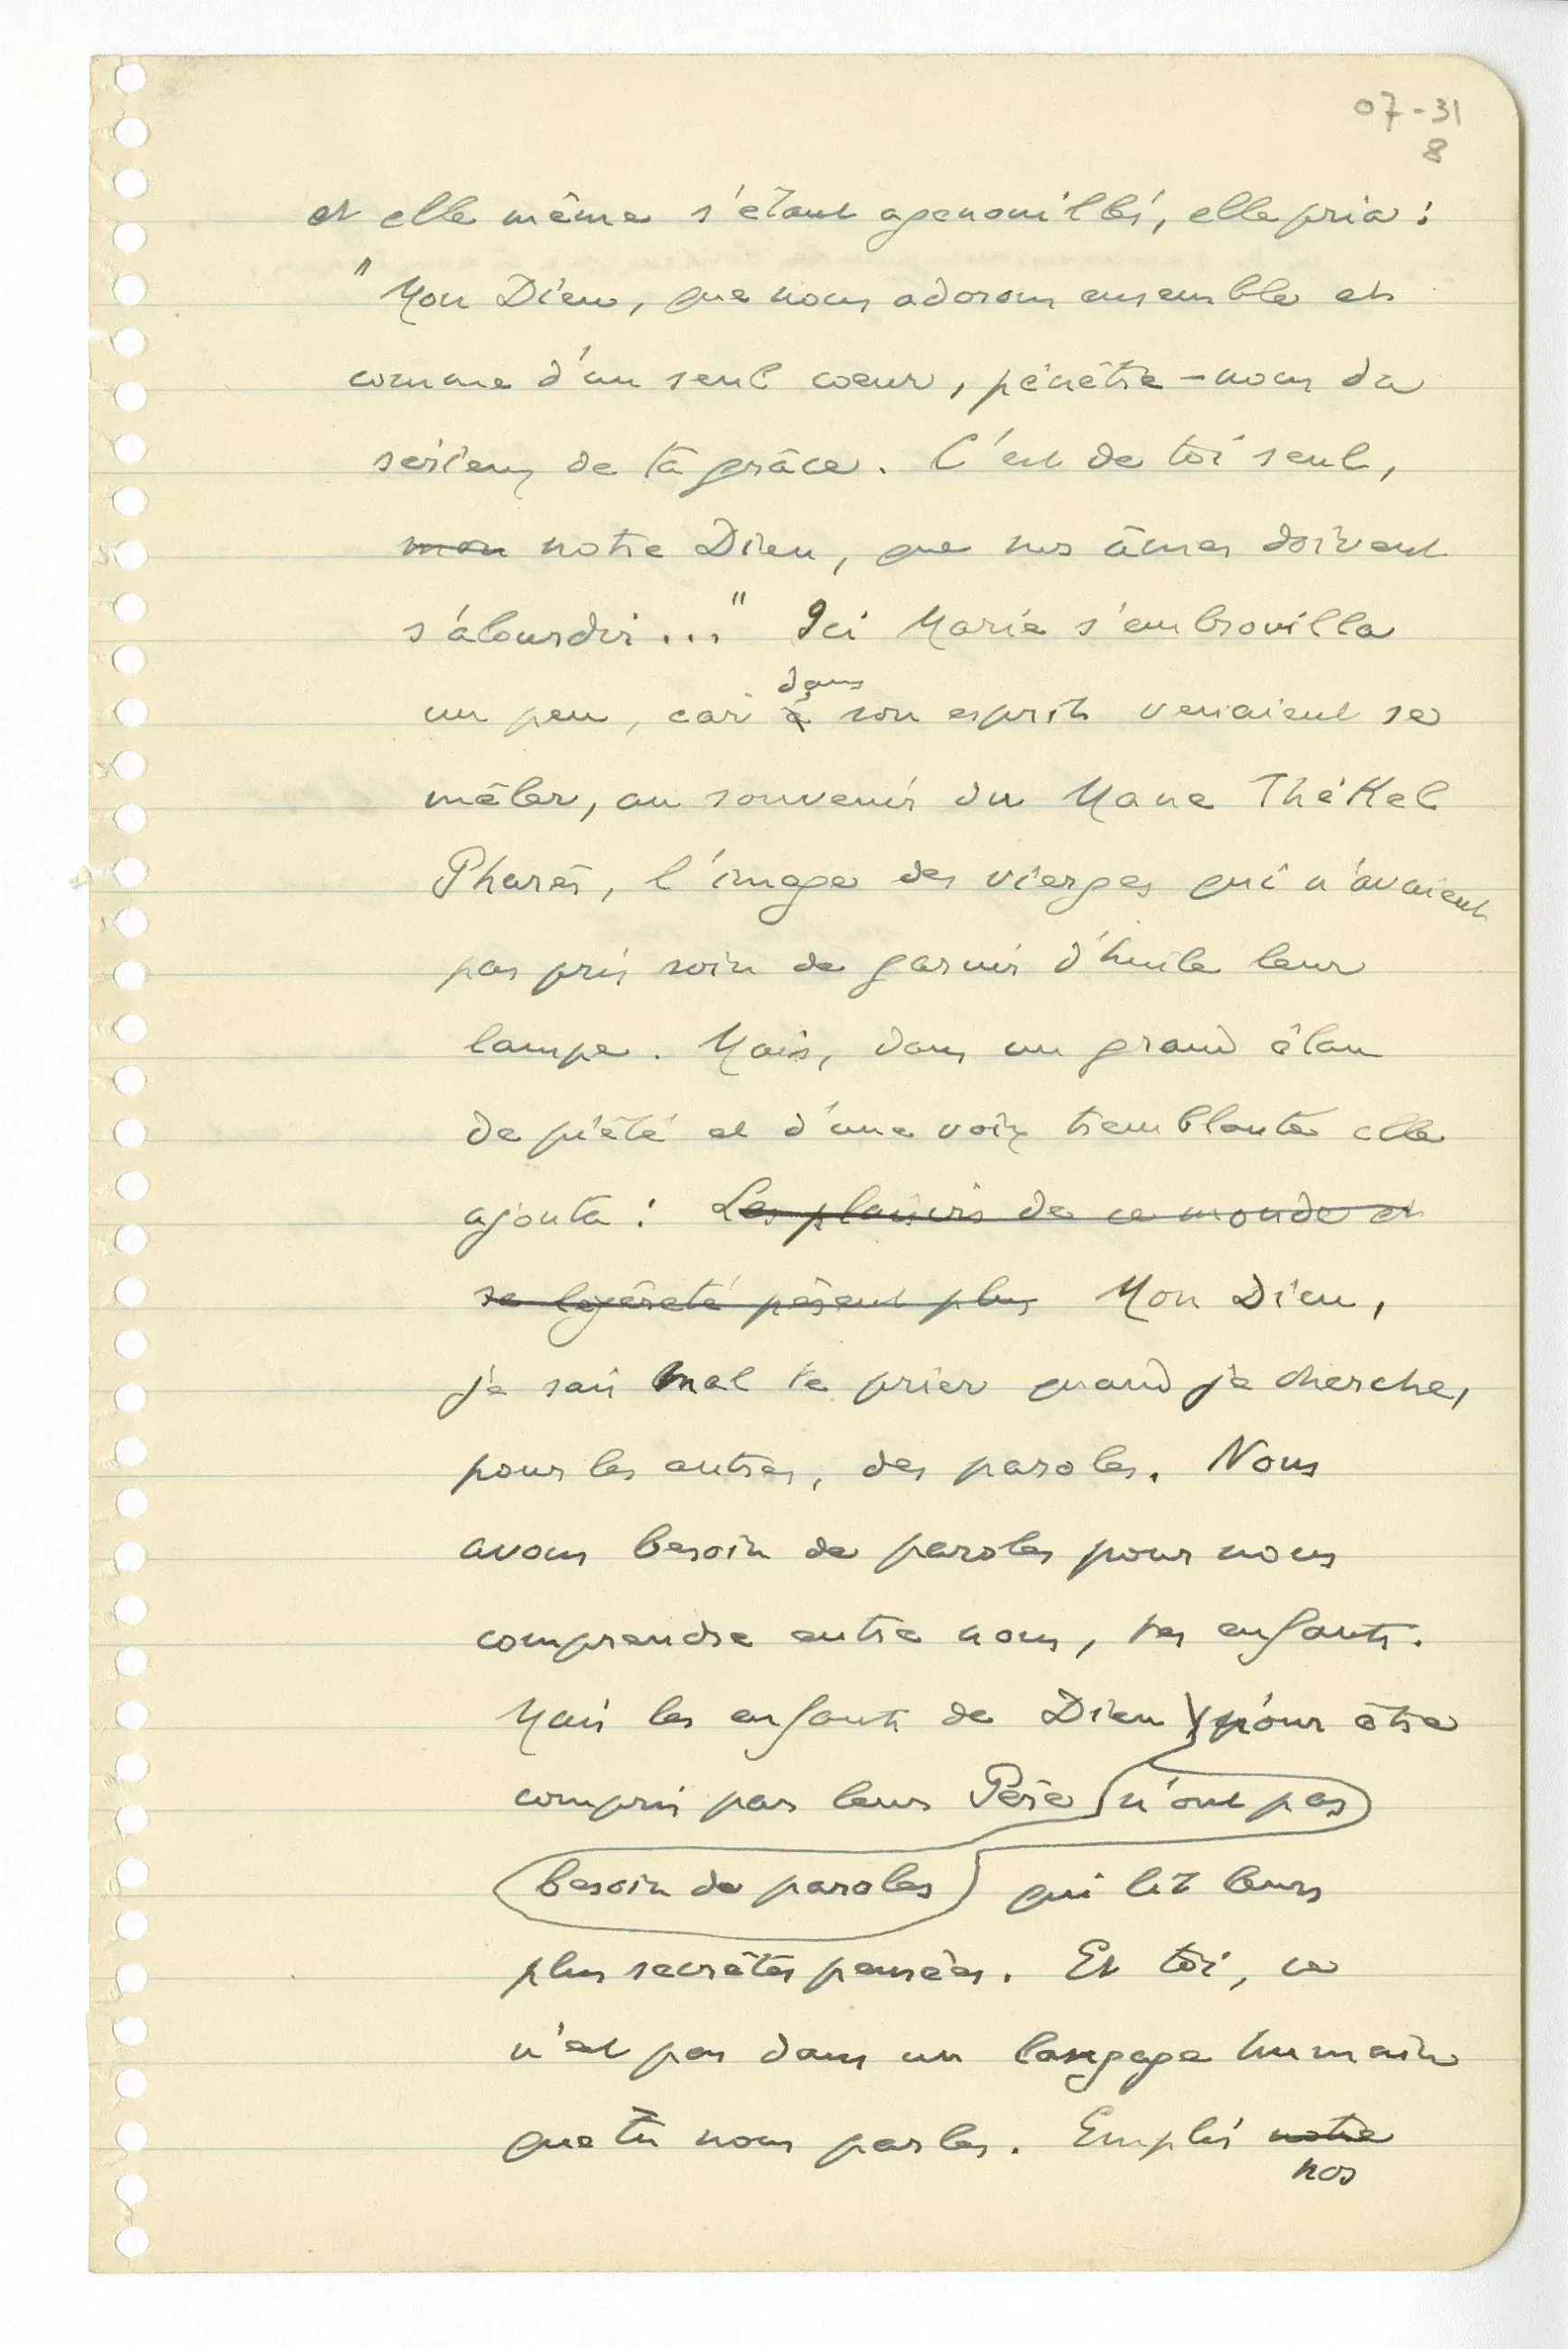 07-31
8
et elle même s'étant agenouillée, elle pria :
"Mon Dieu, que nous adorons ensemble et
comme d'un seul cœur, pénètre-nous du
sérieux de ta grâce. C'est de toi seul,
mon notre Dieu, que nos âmes doivent
s'alourdir..." Ici Marie s'embrouilla
dans
un peu, car à son esprit venaient se
mêler, au souvenir du Mane Thékel
Pharès, l'image des vierges qui n'avaient
pas pris soin de garnir d'huile leur
lampe. Mais, dans un grand élan
de piété et d'une voix tremblante elle
ajouta : Les plaisirs de ce monde et
sa légèreté pèsent plus Mon Dieu,
je sais mal te prier quand je cherche,
pour les autres, des paroles. Nous
avons besoin de paroles pour nous
comprendre entre nous, tes enfants.
Mais les enfants de Dieu pour être
compris par leur Père n'ont pas
besoin de paroles qui lit leurs
plus secrètes pensées. Et toi, ce
n'est pas dans un langage humain
que tu nous parles. Emplis notre
nos